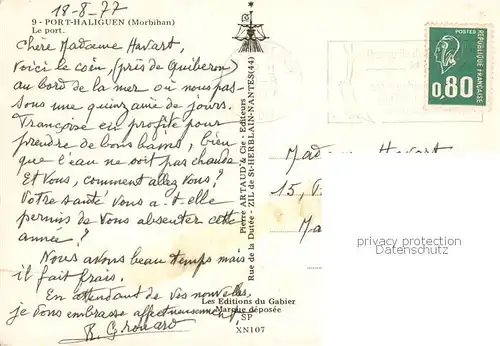 18-8-77
9 - PORT-HALIGUEN (Morbihan)
Le port.
Chère Madame Havart,
Voici le coin, (près de Quiberon)
au bord de la mer où nous pas-
sons une quinzaine de jours.
Françoise en profite pour
prendre de bons bains, bien
que l'eau ne soit pas chaude.
Et vous, comment allez vous?
Votre santé vous a-t-elle
permis de vous absenter cette
année?
Nous avons beau temps mais
il fait frais.
En attendant de vos nouvelles,
je vous embrasse affectueusement,
R. Grouard
Pierre ARTAUD & Cie - Editeurs
Rue de la Dutée ZIL de St-HERBLAIN-NANTES (44)
Les Editions du Gabier
Marque déposée
SP
XN107
POSTES
0,80
REPUBLIQUE FRANÇAISE
Madame Havart
15,
Ma
privacy protection